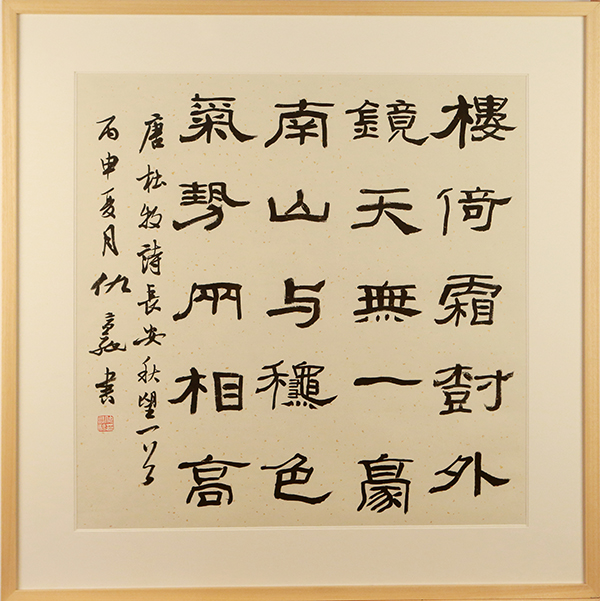 樓倚霜樹外
鏡天無一豪
南山与龝色
氣勢兩相高
唐杜牧詩長安秋望一首
丙申夏月仇書